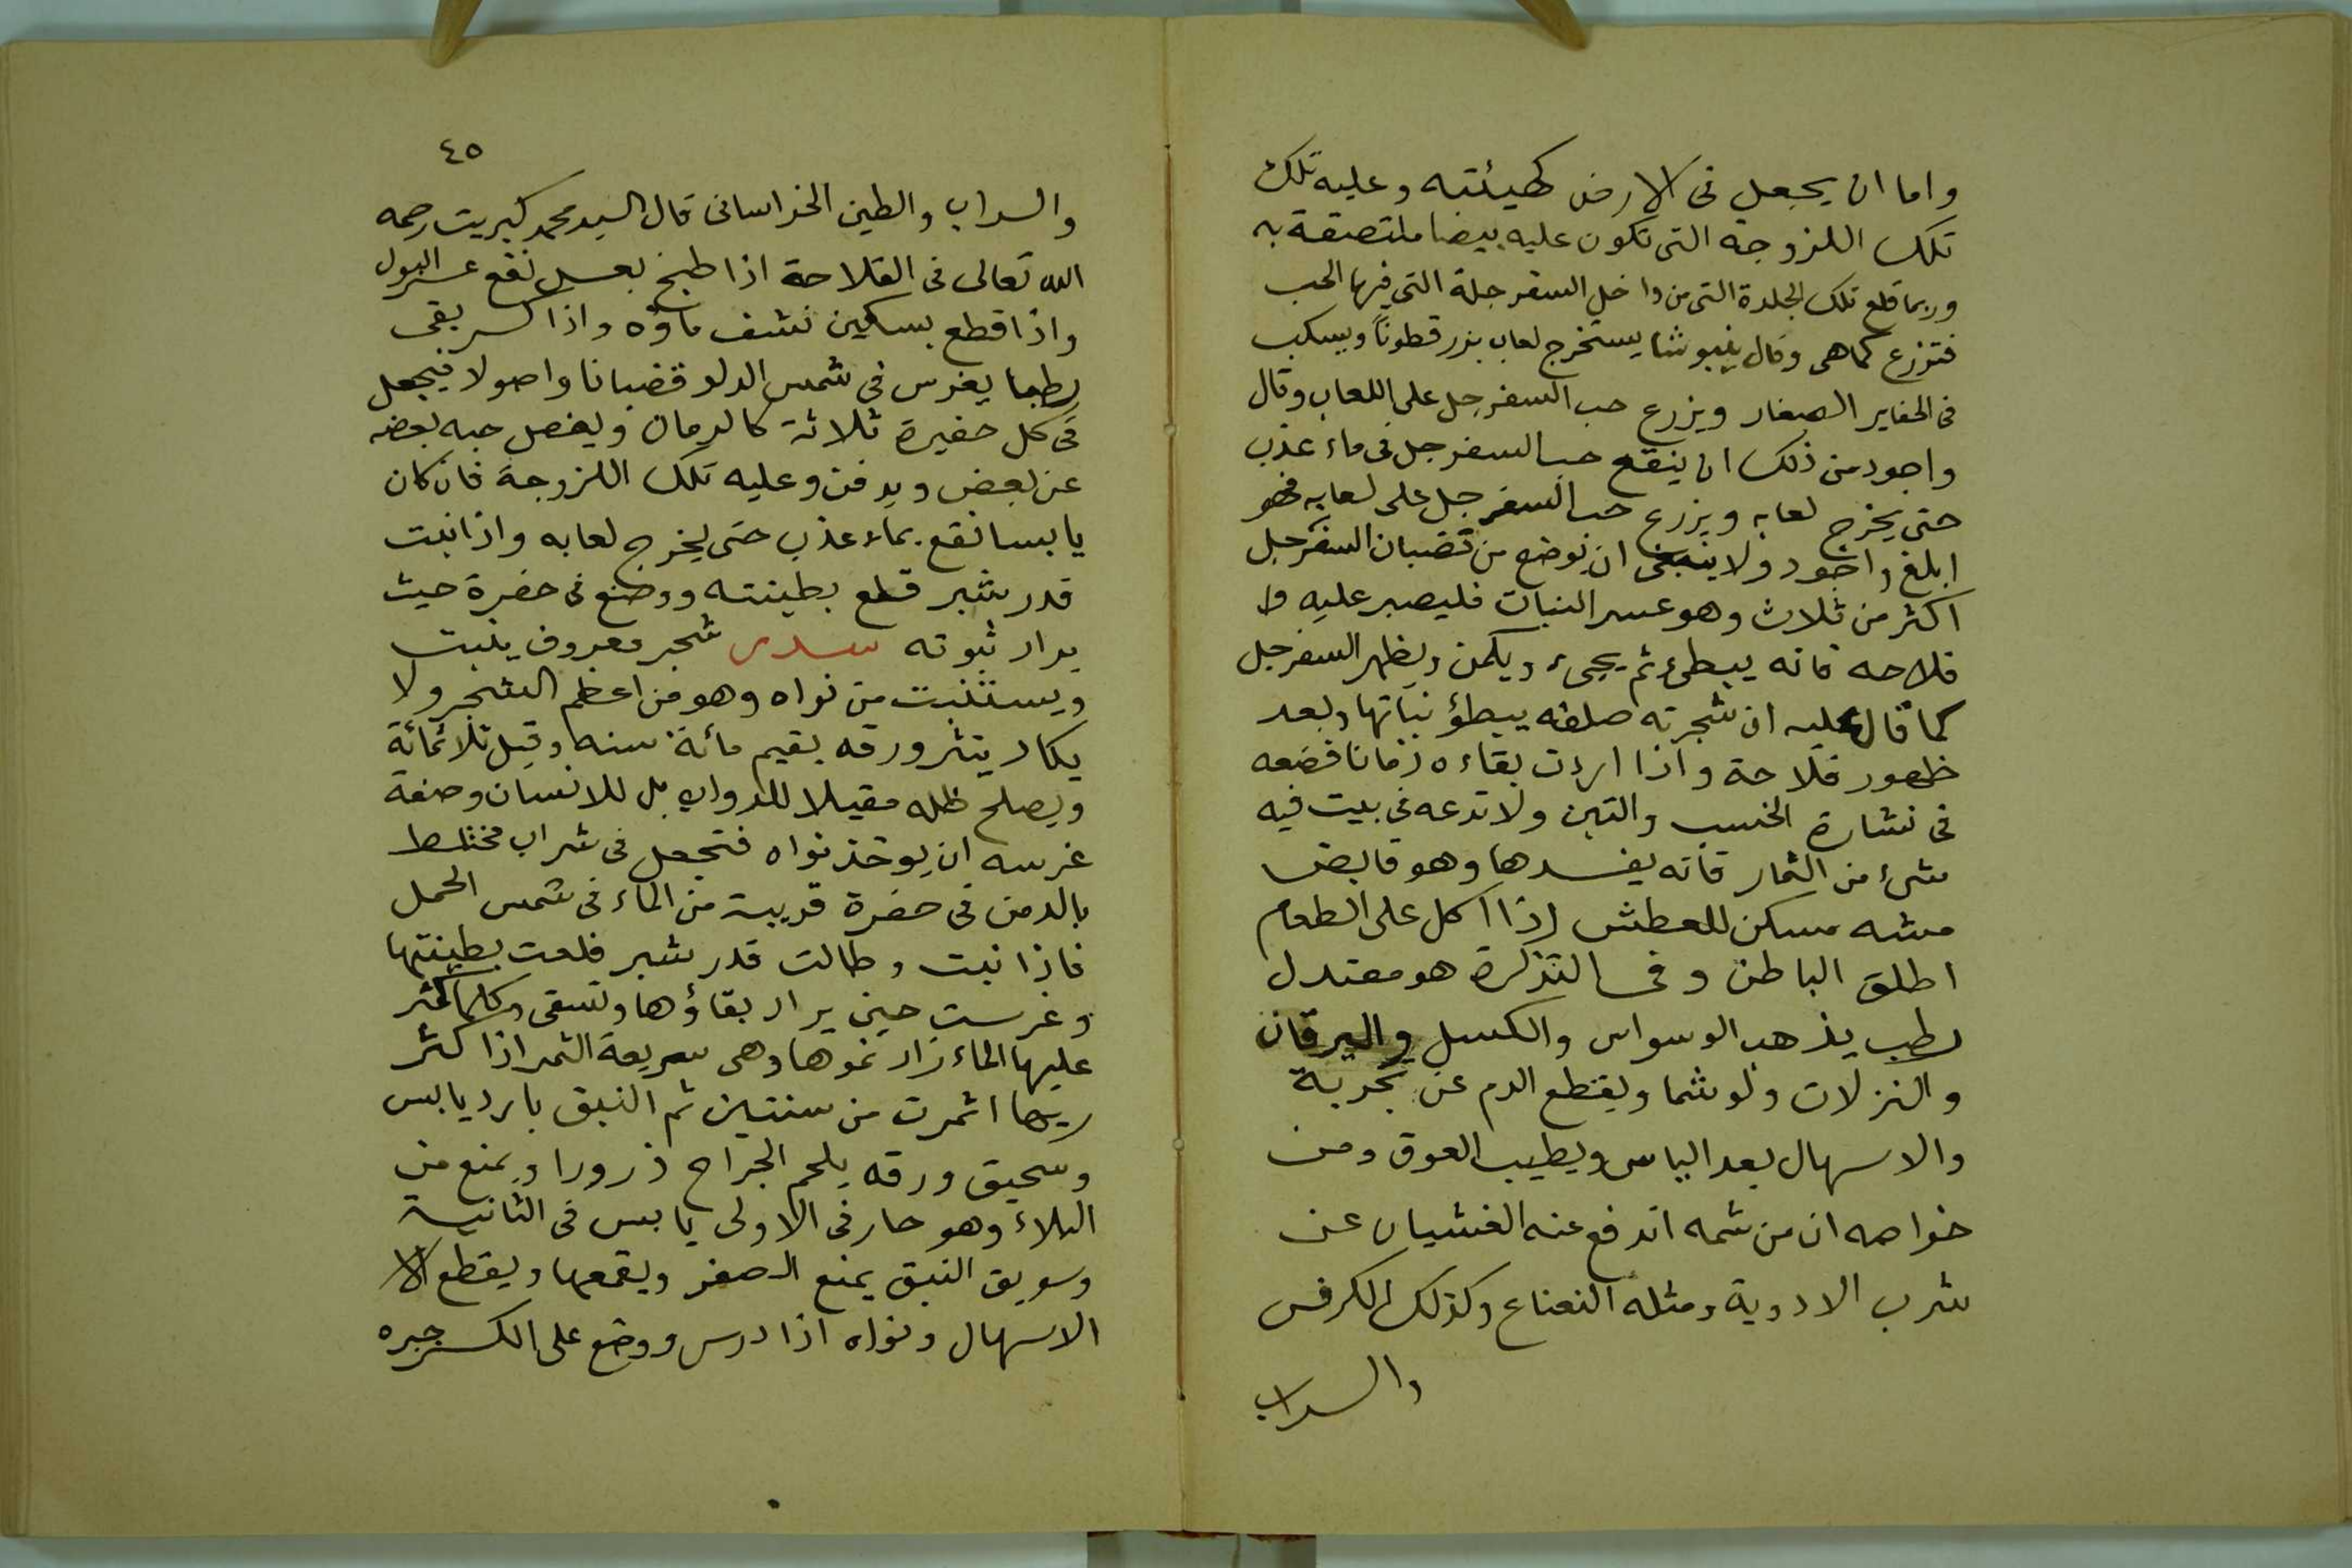 واما ان يجعل فى الارض كهيئته وعليه تلك
تلك اللزوجة التى تكون عليه بيضا ملتصقة به
وربما قلع تلك الجلدة التى من داخل السفرجلة التى فيها الحب
فتوزع كما هى وقال ينبوشا يستخرج لعاب بزر قطونا ويسكب
فى الحفاير الصغار ويزرع حب السفرجل على اللعاب وقال
واجود من ذلك ان ينقع حب السفرجل فى ماء عذب
حتى يخرج لعابه ويزرع حب السفرجل على لعابه فهو
ابلغ واجود ولا ينبغى ان يوضع من قضبان السفرجل
اكثر من ثلاث وهو عسر النبات فليصبر عليه وا
فلاحه فانه يبطىء ثم يجىء ويكمن ويظهر السفرجل
كما قال عليه ان شجرته صلفه يبطؤ نباتها وبعد
ظهور فلاحة واذا اردت بقاءه زمانا فضعه
فى نشارة الخشب والتبن ولا تدعه فى بيت فيه
شىء من الثمار فانه يفسدها وهو قابض
مشه مسكن للعطش اذا اكل على الطعام
اطلق الباطن وفى التذكرة هو معتدل
رطب يذهب الوسواس والكسل واليرقان
والنزلات ولو شما ويقطع الدم عن تجربة
والاسهال بعد الياس ويطيب العوق ومن
خواصه ان من شمه اندفع عنه الغشيان عن
شرب الادوية ومثله النعناع وكذلك الكرفس
والسداب
٤٥
والسداب والطين الخراسانى قال السيد محمد كبريت رحمه
الله تعالى فى الفلاحة اذا طبخ بعسل نفع عسر البول
واذا قطع بسكين نشف ماؤه واذا كسر بقى
رطبا يغرس فى شمس الدلو قضبانا واصولا فيجعل
فى كل حفيرة ثلاثة كالرمان ويفصل حبه بعضه
عن بعض ويدفن وعليه تلك اللزوجة فان كان
يابسا نقع بماء عذب حتى يخرج لعابه واذا نبت
قدر شبر قلع بطينته ووضع فى حفرة حيث
يراد ثبوته سدر شجر معروف ينبت
ويستنبت من نواه وهو من اعظم الشجر ولا
يكاد ينثر ورقه يقيم مائة سنه وقيل ثلاثمائة
ويصلح ظله مقيلا للدواب بل للانسان وصفة
غرسه ان يوخذ نواه فتجعل فى شراب مختلط
بالدمن فى حفرة قريبة من الماء فى شمس الحمل
فاذا نبت وطالت قدر شبر قلعت بطينتها
وغرست حين يراد بقاؤها وتسقى وكلما كثر
عليها الماء زاد نموها وهى سريعة الثمر اذا كثر
ريها اثمرت من سنتين ثم النبق بارد يابس
وسحيق ورقه يلحم الجراح ذرورا ويمنع من
البلاء وهو حار فى الاولى يابس فى الثانية
وسويق النبق يمنع الصفر ويقمعها ويقطع الا
الاسهال ونواه اذا درس ووضع على الكسر جبره